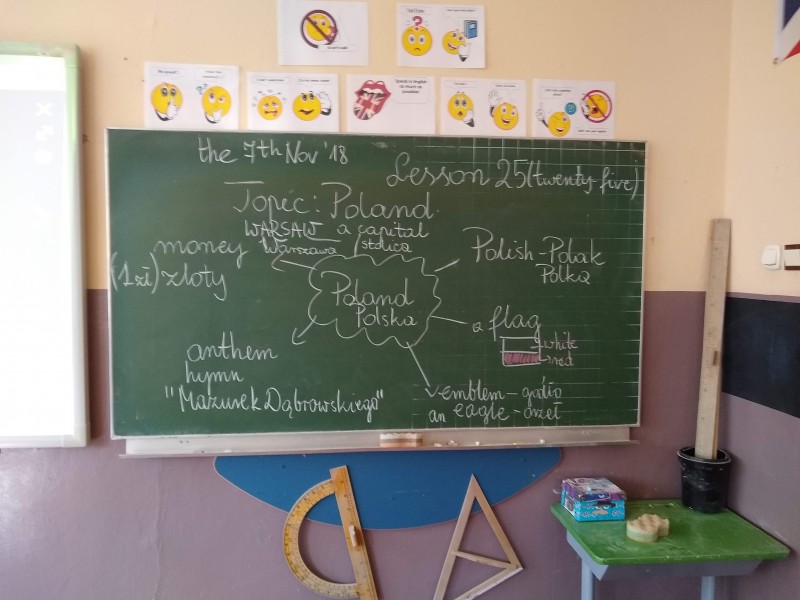 the 7th Nov '18
Lesson 25 (twenty-five)
Topic: Poland.
WARSAW a capital
Warszawa stolica
money
(1 zł) złoty
Polish - Polak
Polka
Poland
Polska
a flag
white
red
anthem
hymn
"Mazurek Dąbrowskiego"
emblem - godło
an eagle - orzeł